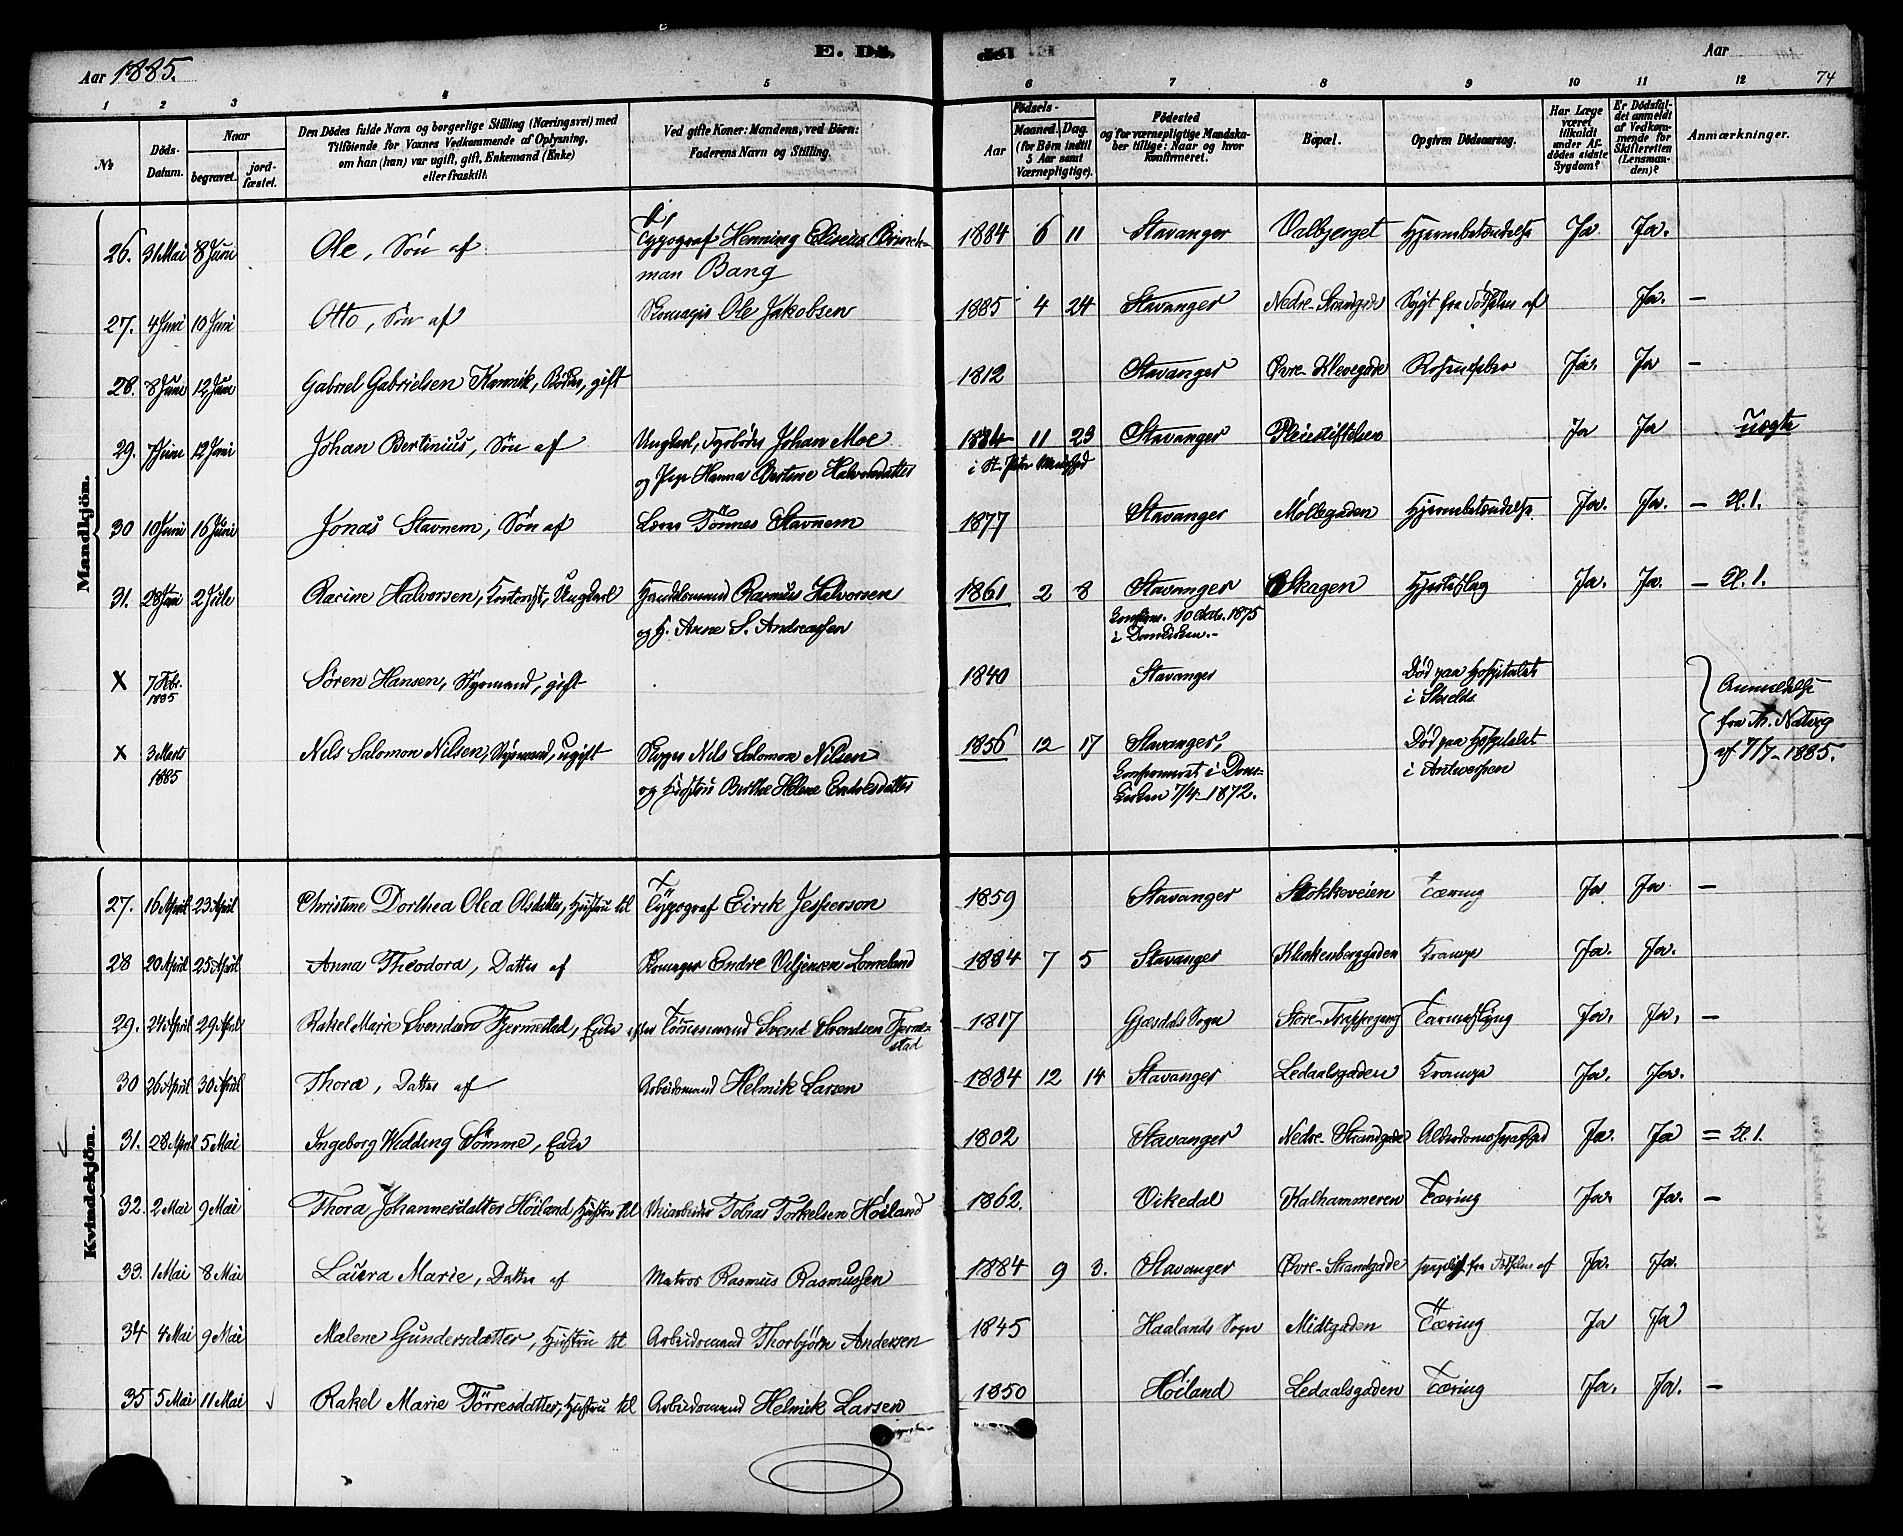 Aar 1885. E. Dø de Aar
74
1 2 3 4 5 6 7 8 9 10 11 12
No Döds-Datum. Naar begravet. jord-fæstet. Den Dödes fulde Navn og borgerlige Stilling (Næringsvei) med Tilföiende for Voxnes Vedkommende af Oplysning, om han (hun) var ugift, gift, Enkemand (Enke) eller fraskilt. Ved gifte Koner: Mandens, ved Börn: Faderens Navn og Stilling. Födsels- Aar Maaned. Dag. (for Börn indtil 5 Aar samt Værnepligtige). Födested og for værnepligtige Mandskaber tillige: Naar og hvor konfirmeret. Bopæl. Opgiven Dödsaarsag. Har Læge været tilkaldt under Afdödes sidste Sygdom? Er Dödsfaldet anmeldt af Vedkommende for Skifteretten (Lensmanden)? Anmærkninger.
Mandkjön.
26. 31 Mai 8 Juni Ole, Søn af Typograf Henning Eliseus Brinckman Bang 1884 6 11 Stavanger Valbjerget Hjernebetændelse Ja Ja.
27. 4 Juni 10 Juni Otto, Søn af Skomager Ole Jakobsen 1885 4 24 Stavanger Nedre-Strandgade Sygt fra Fødselen af Ja. —
28. 8 Juni 12 Juni Gabriel Gabrielsen Kannik, gift 1812 Stavanger Øvre-Klevegade Ja. Ja —
29. 7 Juni 12 Juni Johan Bertinius, Søn af Ungkarl, Fyrbøder Johan Moe og Pige Hanna Bertine Halvorsdatter 1884 11 23 i St. Petri Menighed Stavanger Pleiestiftelsen Ja Ja uægte
30 10 Juni 16 Juni Jonas Stavnem, Søn af Tønnes Stavnem 1877 Stavanger Møllegaden Hjernebetændelse Ja. Ja. — Kl. 1.
31. 28 Juni 2 Juli Rasine Halvorsen, Kontorist, Ungkarl Handelsmand Rasmus Halvorsen og H. Anne S. Andreassen 1861 2 8 Stavanger Konfirm. 10 Okto. 1875 i Domkirken.- Skagen Hjerteslag Ja. Ja. — Kl. 1.
X 7 Febr. 1885 Søren Hansen, Styrmand, gift 1840 Stavanger Død paa Hospitalet i Shields
X 3 Marts 1885 Nils Salomon Nilsen, Styrmand, ugift Skipper Nils Salomon Nilsen og Hustru Berthe Helene Endresdatter 1856 12 17 Stavanger, Konfirmeret i Domkirken 7/4-1872. Død paa Hospitalet i Antwerpen Anmeldelse fra Th. Natvig af 7/7-1885.
Kvindekjön.
27. 16 April 23 April Christine Dorthea Olea Olsdatter, Hustru til Typograf Eirik Jesperson 1859 Stavanger Stokkeveien Tæring Ja Ja —
28 20 April 25 April Anna Theodora, Datter af Skomager Endre Viljensen Lonneland 1884 7 5 Stavanger Klinkenberggaden Krampe Ja. Ja.
29. 24 April 29 April Rakel Marie Svendsen Tjermestad, Enke efter Tømmermand Svend Svendsen Tjermestad 1817 Gjæsdals Sogn Store-Trappegang Ja. Ja. —
30 26 April 30 April Thora, Datter af Arbeidsmand Helmik Larsen 1884 12 14 Stavanger Ledaalsgaden Krampe Ja. Ja.
31. 28 April 5 Mai Ingeborg Wedding Sömme, Enke 1802 Stavanger Nedre-Strandgade Alderdomssvaghed Ja. Ja = Kl. 1.
32. 2 Mai 9 Mai Thora Johannesdatter Höiland, Hustru til Veiarbeider Tobias Torkelsen Höiland 1862. Vikedal Kalhammeren Tæring Ja. Ja. —
33. 1 Mai 8 Mai Laura Marie, Datter af Matros Rasmus Rasmussen 1884 9 3. Stavanger Øvre-Strandgade svagelig fra Fødselen af Ja. Ja.
34 4 Mai 9 Mai Malene Gundersdatter, Hustru til Arbeidsmand Thorbjørn Andersen 1845 Haalands Sogn Midtgaden Tæring Ja Ja
35 5 Mai 11 Mai Rakel Marie Törresdatter, Hustru til Arbeidsmand Helmik Larsen 1850 Höiland Ledaalsgaden Tæring Ja. Ja. —